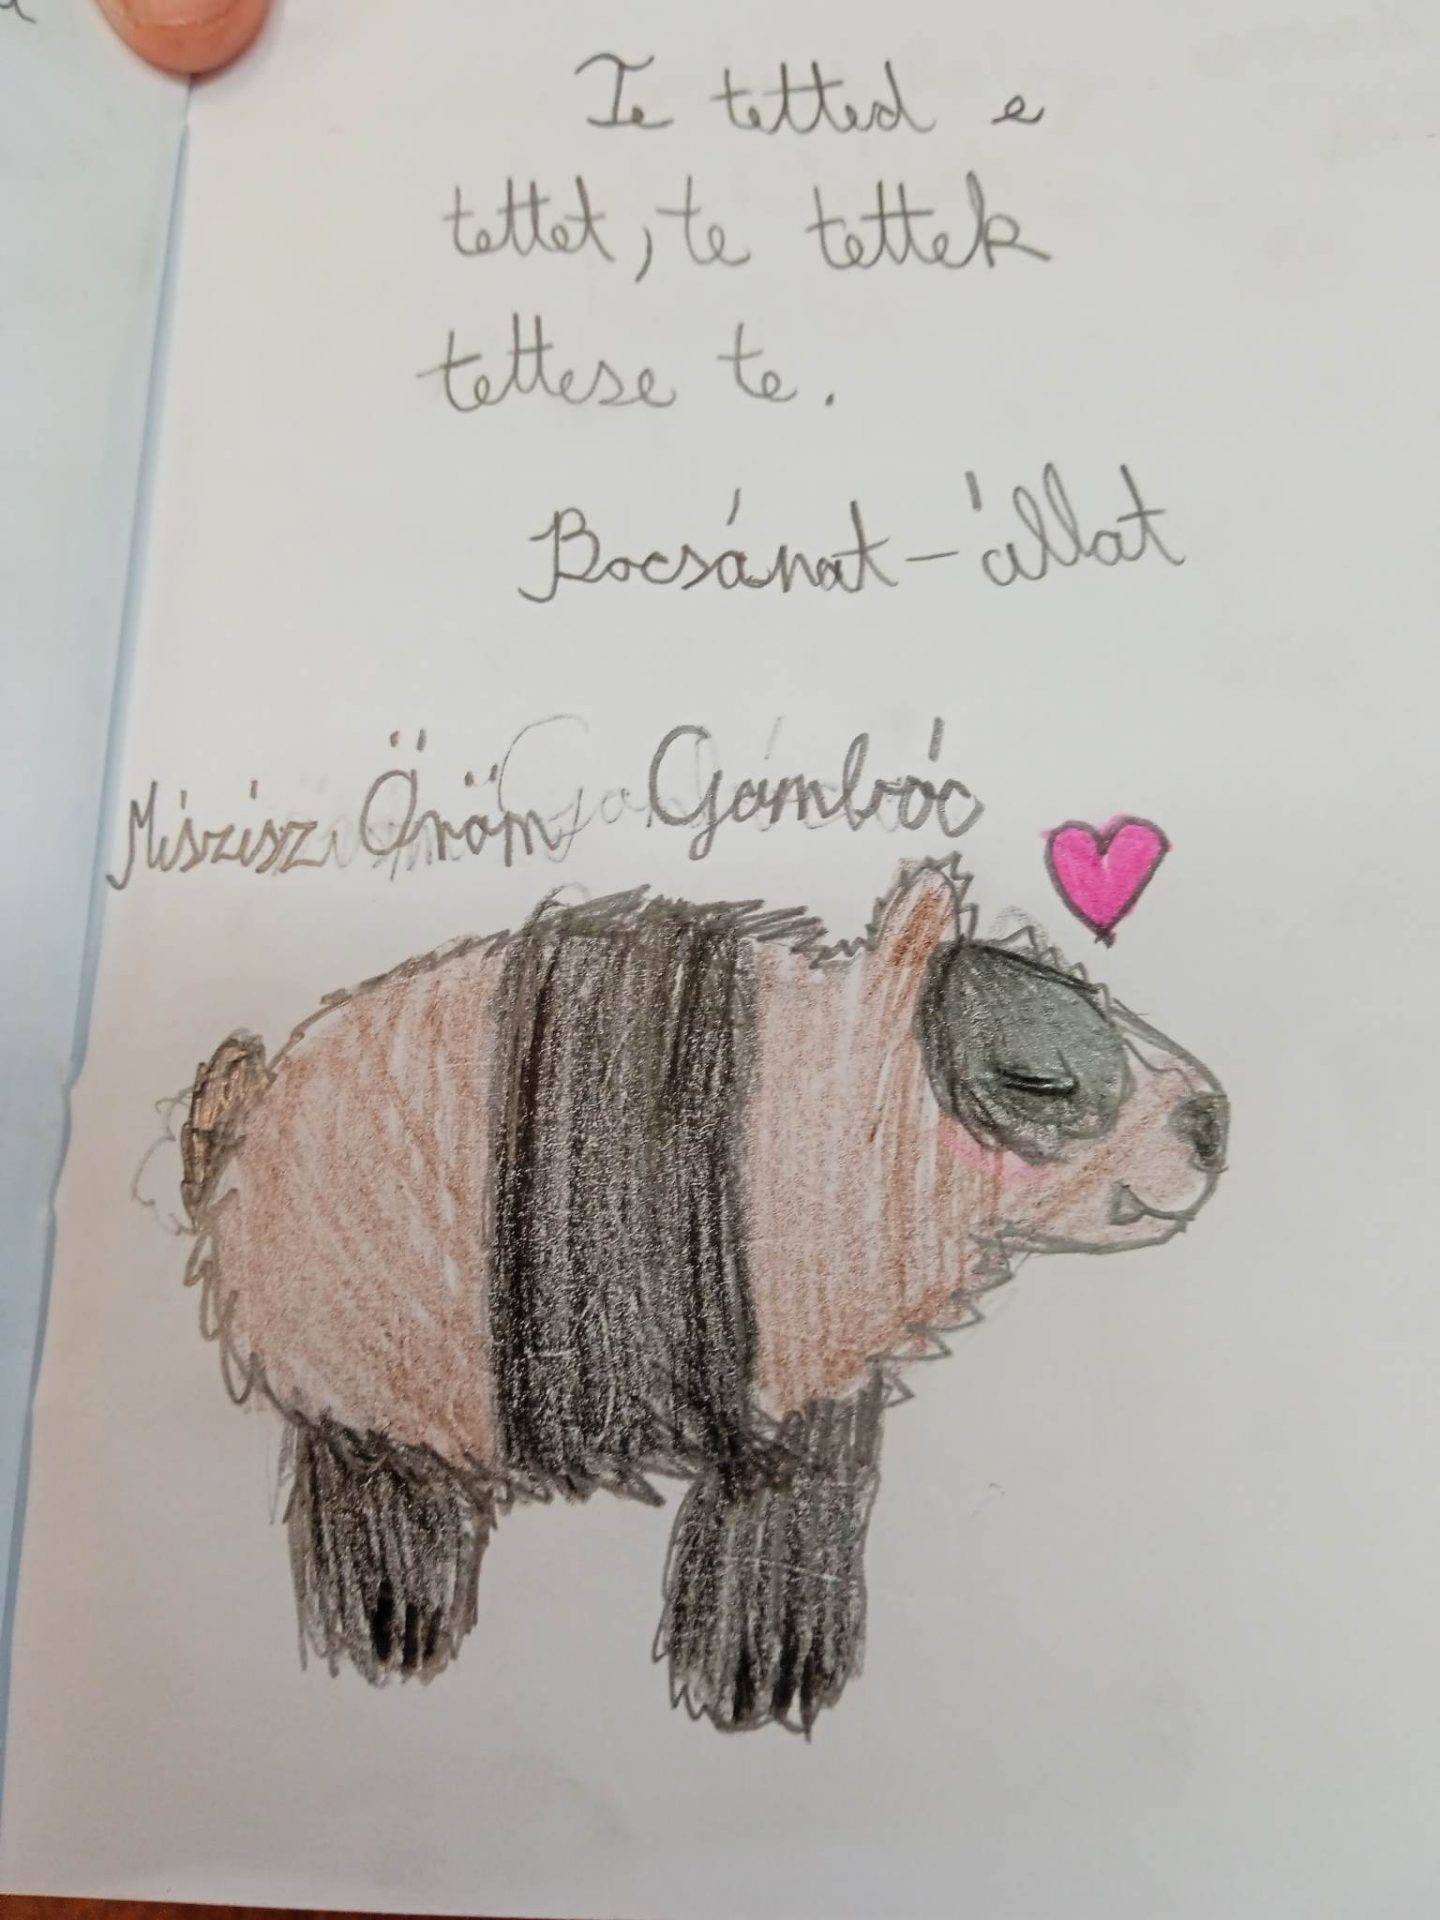 Te tetted e
tettet, te tettek
tettese te.
Bocsánat-állat
Miszisz Öröm Gombóc